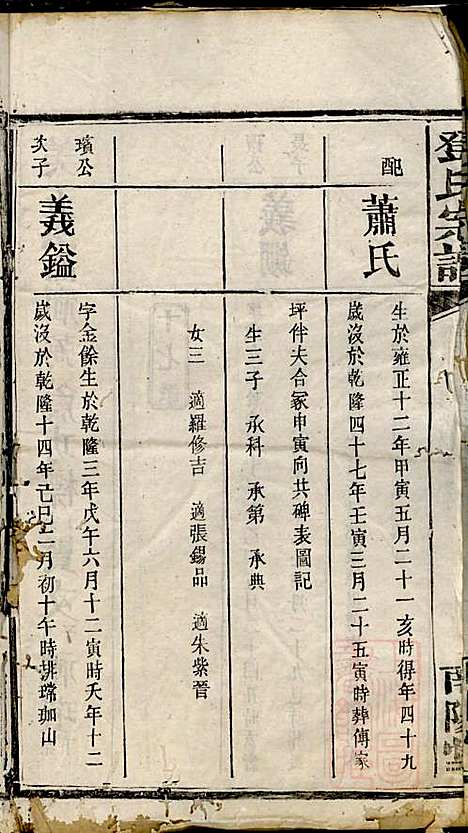 鄧氏宗譜
南陽堂
配
蕭氏
生於雍正十二年甲寅五月二十一亥時得年四十九
歲沒於乾隆四十七年壬寅三月二十五寅時葬傅家
坪伴夫合冢申寅向共碑表圖記
生三子 承科 承第 承典
女三 適羅修吉 適張錫品 適朱紫晉
璸公
次子
義鎰
字金餘生於乾隆三年戊午六月十二寅時夭年十二
歲沒於乾隆十四年己巳二月初十午時葬瑺珈山